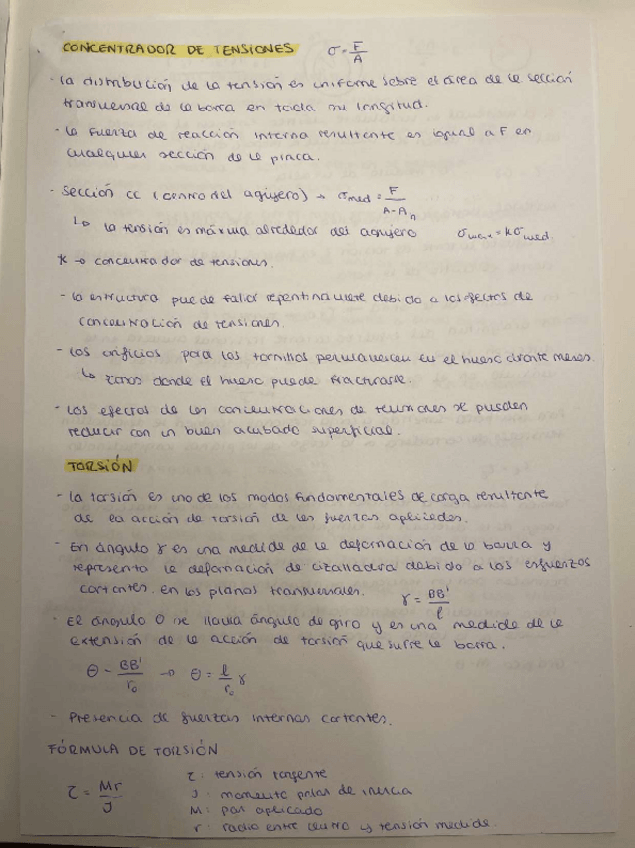 CONCENTRADOR DE TENSIONES σ = F/A
- La distribución de la tensión es uniforme sobre el área de la sección
transversal de la barra en toda su longitud.
- La fuerza de reacción interna resultante es igual a F en
cualquier sección de la placa.
- Sección CC (centro del agujero) → σmed = F/(A-An)
↳ la tensión es máxima alrededor del agujero σmax = kσmed.
K → concentrador de tensiones.
- La estructura puede fallar repentinamente debido a los efectos de
concentración de tensiones.
- Los orificios para los tornillos permanecen en el hueso durante meses.
↳ zonas donde el hueso puede fracturarse.
- Los efectos de las concentraciones de tensiones se pueden
reducir con un buen acabado superficial.
TORSIÓN
- La torsión es uno de los modos fundamentales de carga resultante
de la acción de torsión de las fuerzas aplicadas.
- En ángulo γ es una medida de la deformación de la barra y
representa la deformación de cizalladura debido a los esfuerzos
cortantes en los planos transversales. γ = BB'/l
- El ángulo θ se llama ángulo de giro y es una medida de la
extensión de la acción de torsión que sufre la barra.
θ = BB'/r₀ → θ = l/r₀ γ
- Presencia de fuerzas internas cortantes.
FÓRMULA DE TORSIÓN
τ = Mr/J τ: tensión tangente
J: momento polar de inercia
M: par aplicado
r: radio entre centro y tensión medida.